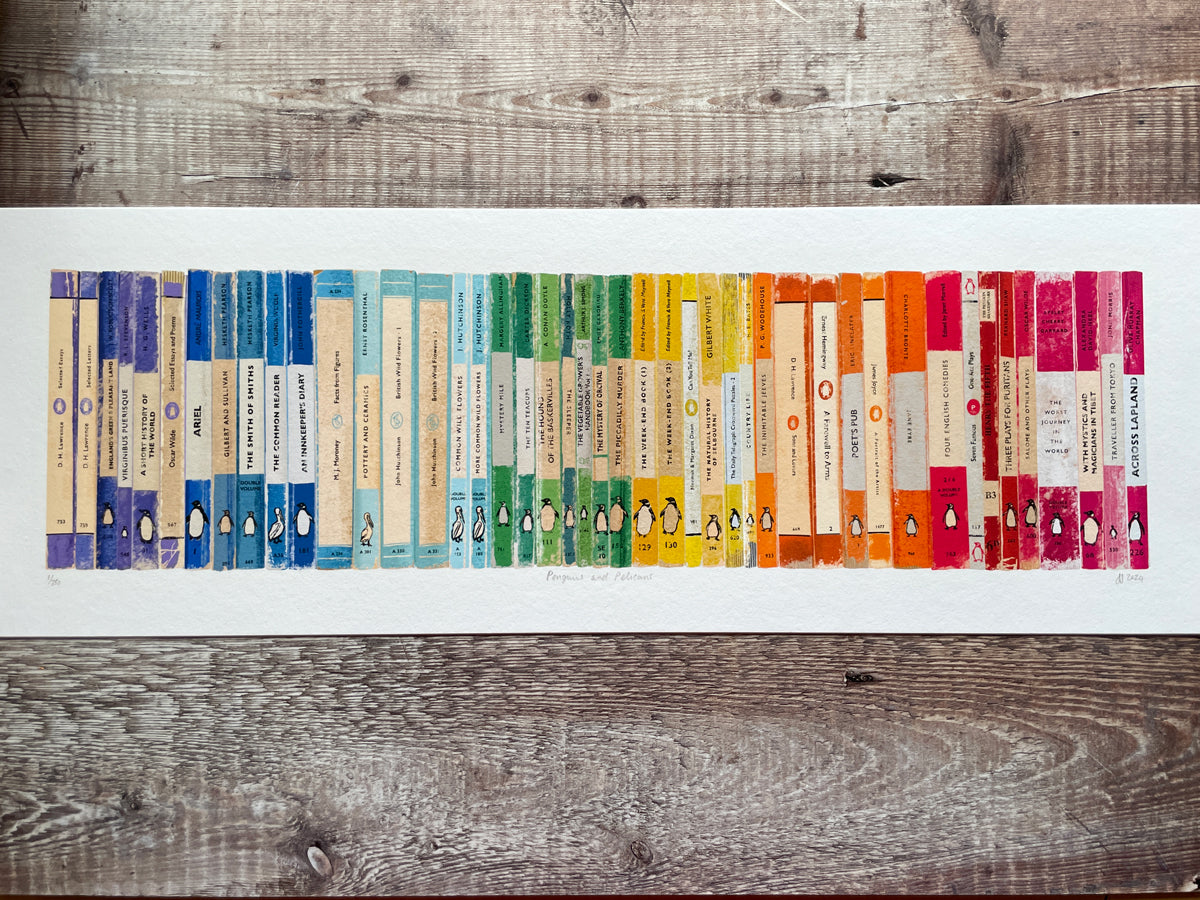 D. H. LAWRENCE
Selected Essays
753
D. H. LAWRENCE
Selected Letters
759
ENGLAND'S GREEN & PLEASANT LAND
VIRGINIBUS PUERISQUE
H. G. WELLS
A SHORT HISTORY OF
THE WORLD
Selected Essays and Poems
Oscar Wilde
567
ANDRÉ MAUROIS
ARIEL
1
HESKETH PEARSON
GILBERT AND SULLIVAN
HESKETH PEARSON
THE SMITH OF SMITHS
DOUBLE
VOLUME
VIRGINIA WOOLF
THE COMMON READER
JOHN FOTHERGILL
AN INNKEEPER'S DIARY
M. J. Moroney
Facts from Figures
ERNST ROSENTHAL
POTTERY AND CERAMICS
John Hutchinson
British Wild Flowers - 1
John Hutchinson
British Wild Flowers - 2
J. HUTCHINSON
COMMON WILD FLOWERS
J. HUTCHINSON
MORE COMMON WILD FLOWERS
MARGERY ALLINGHAM
MYSTERY MILE
CARTER DICKSON
THE TEN TEACUPS
A. CONAN DOYLE
THE HOUND
OF THE BASKERVILLES
111
THE SLEEPER
THE VEGETABLE GROWER'S
HANDBOOK
THE MYSTERY OF ORCIVAL
ANTHONY BERKELEY
THE PICCADILLY MURDER
Edited by Francis & Vera Meynell
THE WEEK-END BOOK (1)
129
Edited by Francis & Vera Meynell
THE WEEK-END BOOK (2)
130
Can You Tell Me?
GILBERT WHITE
THE NATURAL HISTORY
OF SELBORNE
The Daily Telegraph Crossword Puzzles - 2
H. E. BATES
COUNTRY LIFE
P. G. WODEHOUSE
THE INIMITABLE JEEVES
D. H. Lawrence
Sons and Lovers
Ernest Hemingway
A Farewell to Arms
2
ERIC LINKLATER
POET'S PUB
James Joyce
CHARLOTTE BRONTË
JANE EYRE
FOUR ENGLISH COMEDIES
A DOUBLE
VOLUME
Seven Famous One-Act Plays
B3
BERNARD SHAW
THREE PLAYS FOR PURITANS
OSCAR WILDE
SALOME AND OTHER PLAYS
APSLEY
CHERRY
GARRARD
THE
WORST
JOURNEY
IN THE
WORLD
ALEXANDRA
DAVID-NEEL
WITH MYSTICS AND
MAGICIANS IN TIBET
JOHN MORRIS
TRAVELLER FROM TOKYO
CHAPMAN
ACROSS LAPLAND
226
1/250
Penguins and Pelicans
2024